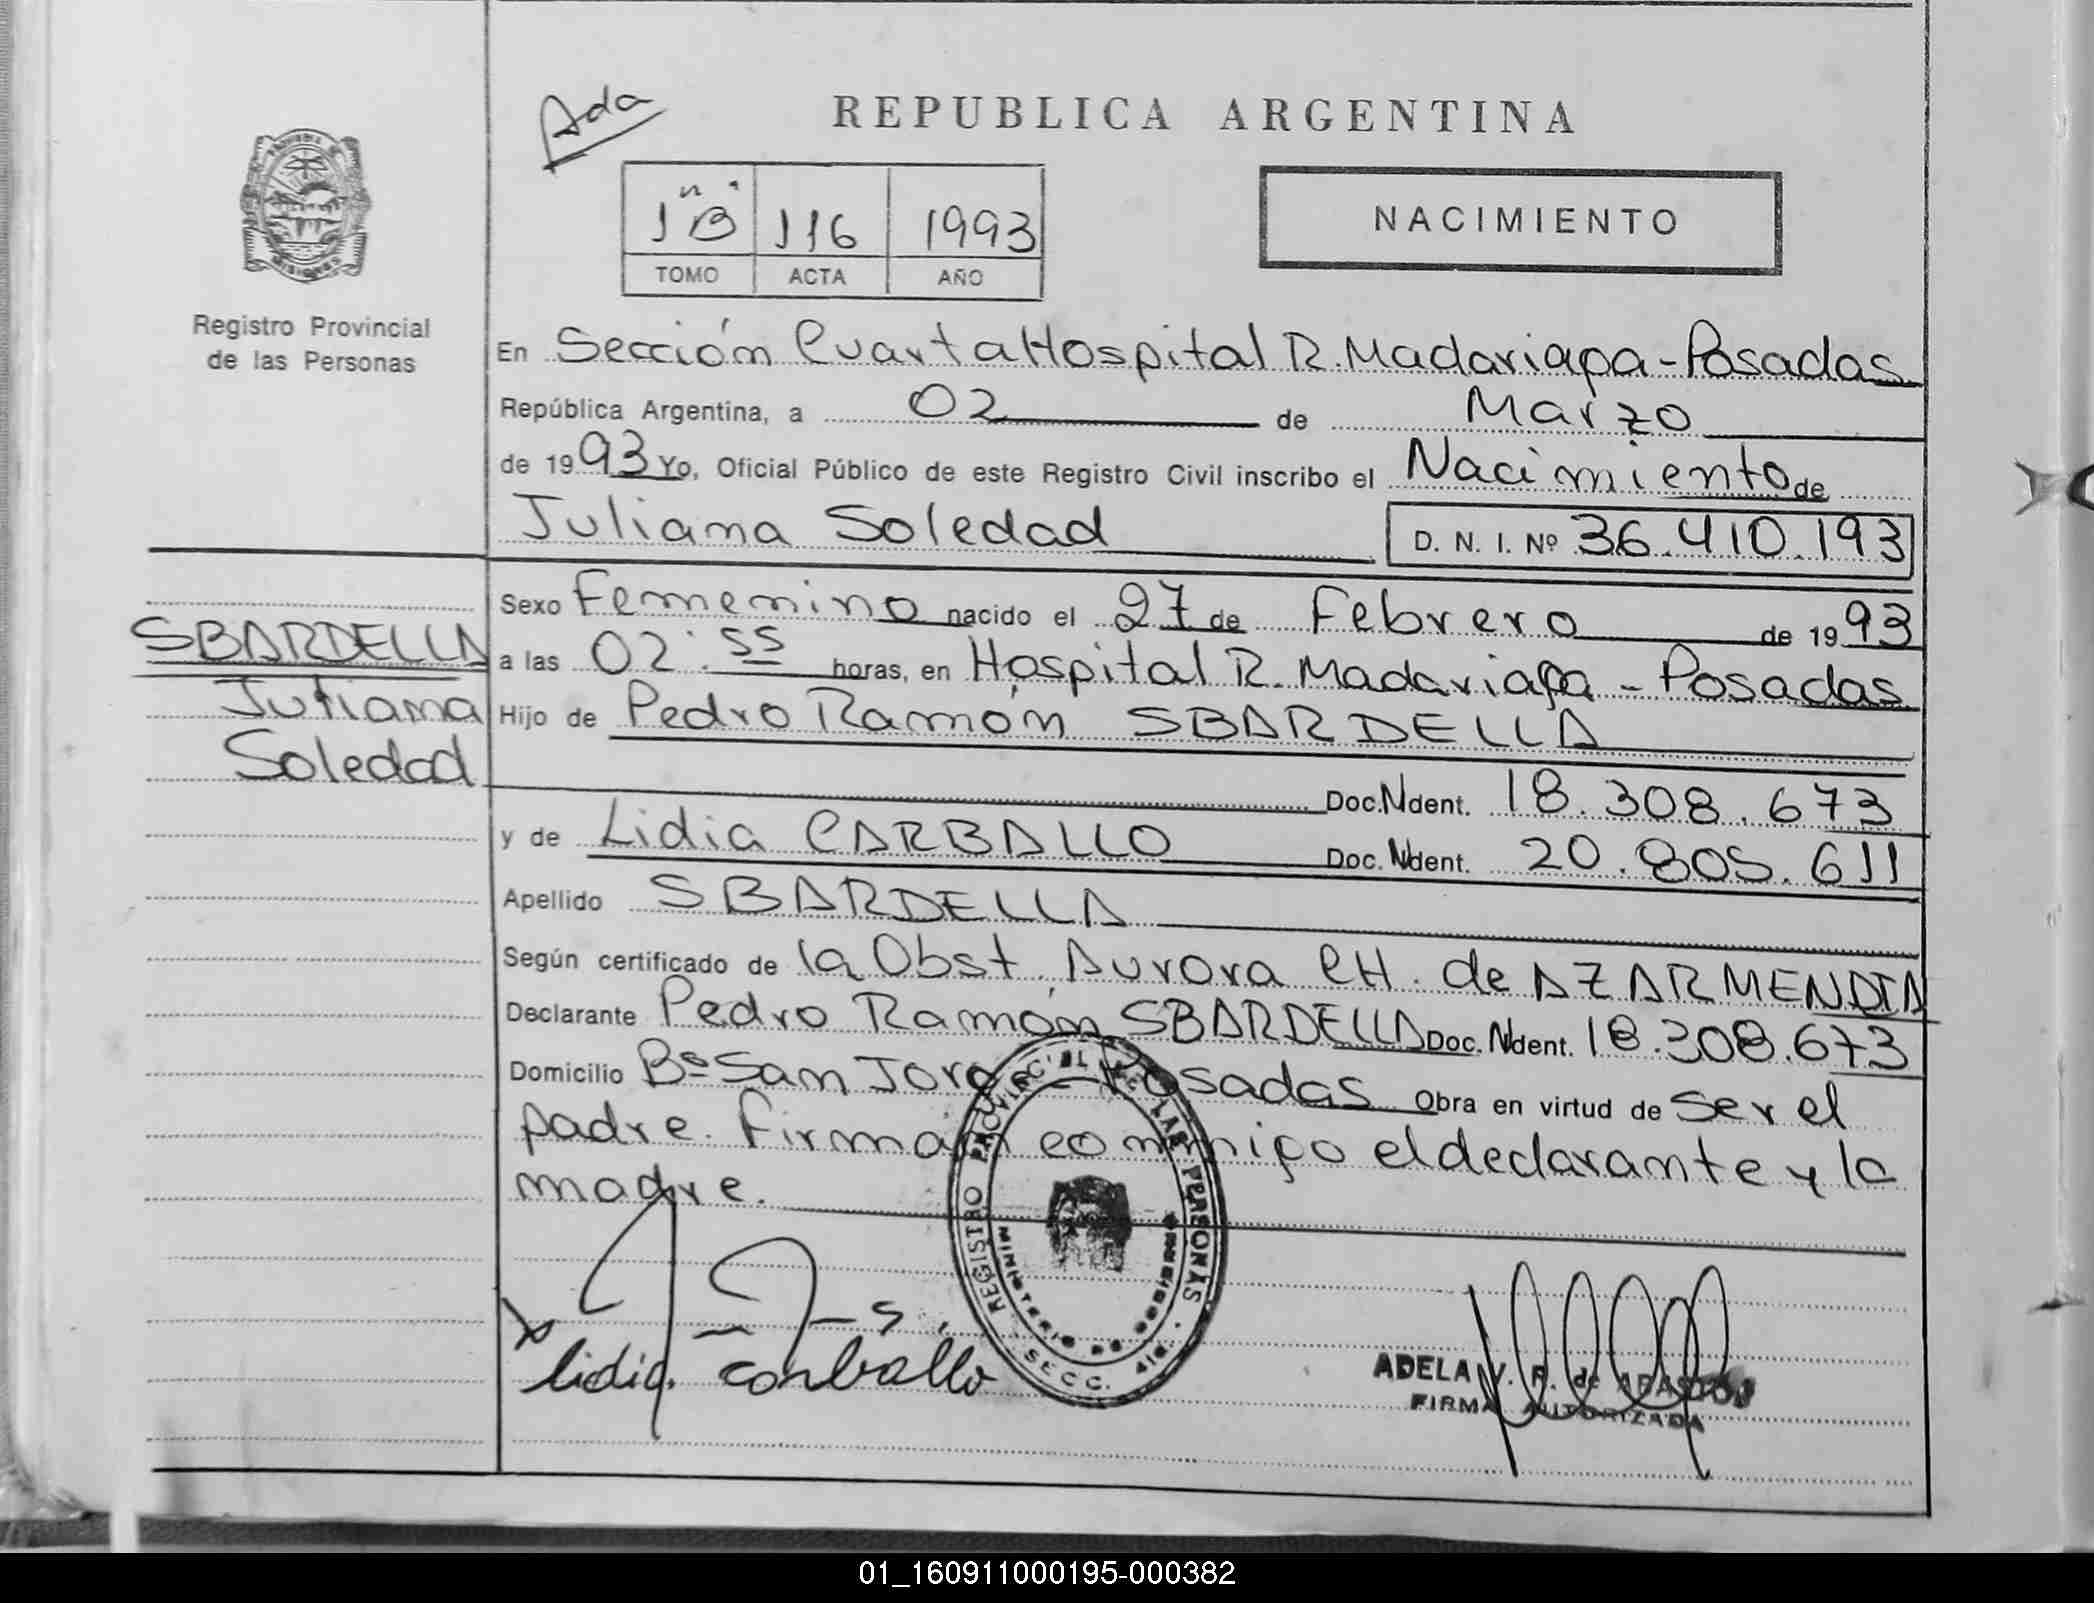 Ada
REPUBLICA ARGENTINA
1 "B" 116 1993
TOMO ACTA AÑO
NACIMIENTO
Registro Provincial
de las Personas
En Sección Cuarta Hospital R. Madariaga - Posadas
República Argentina, a 02 de Marzo
de 1993 Yo, Oficial Público de este Registro Civil inscribo el Nacimiento de
Juliana Soledad D. N. I. Nº 36.410.193
SBARDELLA
Juliana
Soledad
Sexo Femenino nacido el 27 de Febrero de 1993
a las 02:55 horas, en Hospital R. Madariaga - Posadas
Hijo de Pedro Ramón SBARDELLA
Doc. Ndent. 18.308.673
y de Lidia CARBALLO Doc. Ndent. 20.805.611
Apellido SBARDELLA
Según certificado de la Obst. Aurora CH. de AZARMENDIA
Declarante Pedro Ramón SBARDELLA Doc. Ndent. 18.308.673
Domicilio Bº San Jorge Posadas Obra en virtud de Ser el
padre. Firman conmigo el declarante y la
madre.
REGISTRO PROVINCIAL DE LAS PERSONAS
MINISTERIO DE GOBIERNO
SECC. 4ta.
Lidia Carballo
ADELA V. R. de
FIRMA AUTORIZADA
01_160911000195-000382